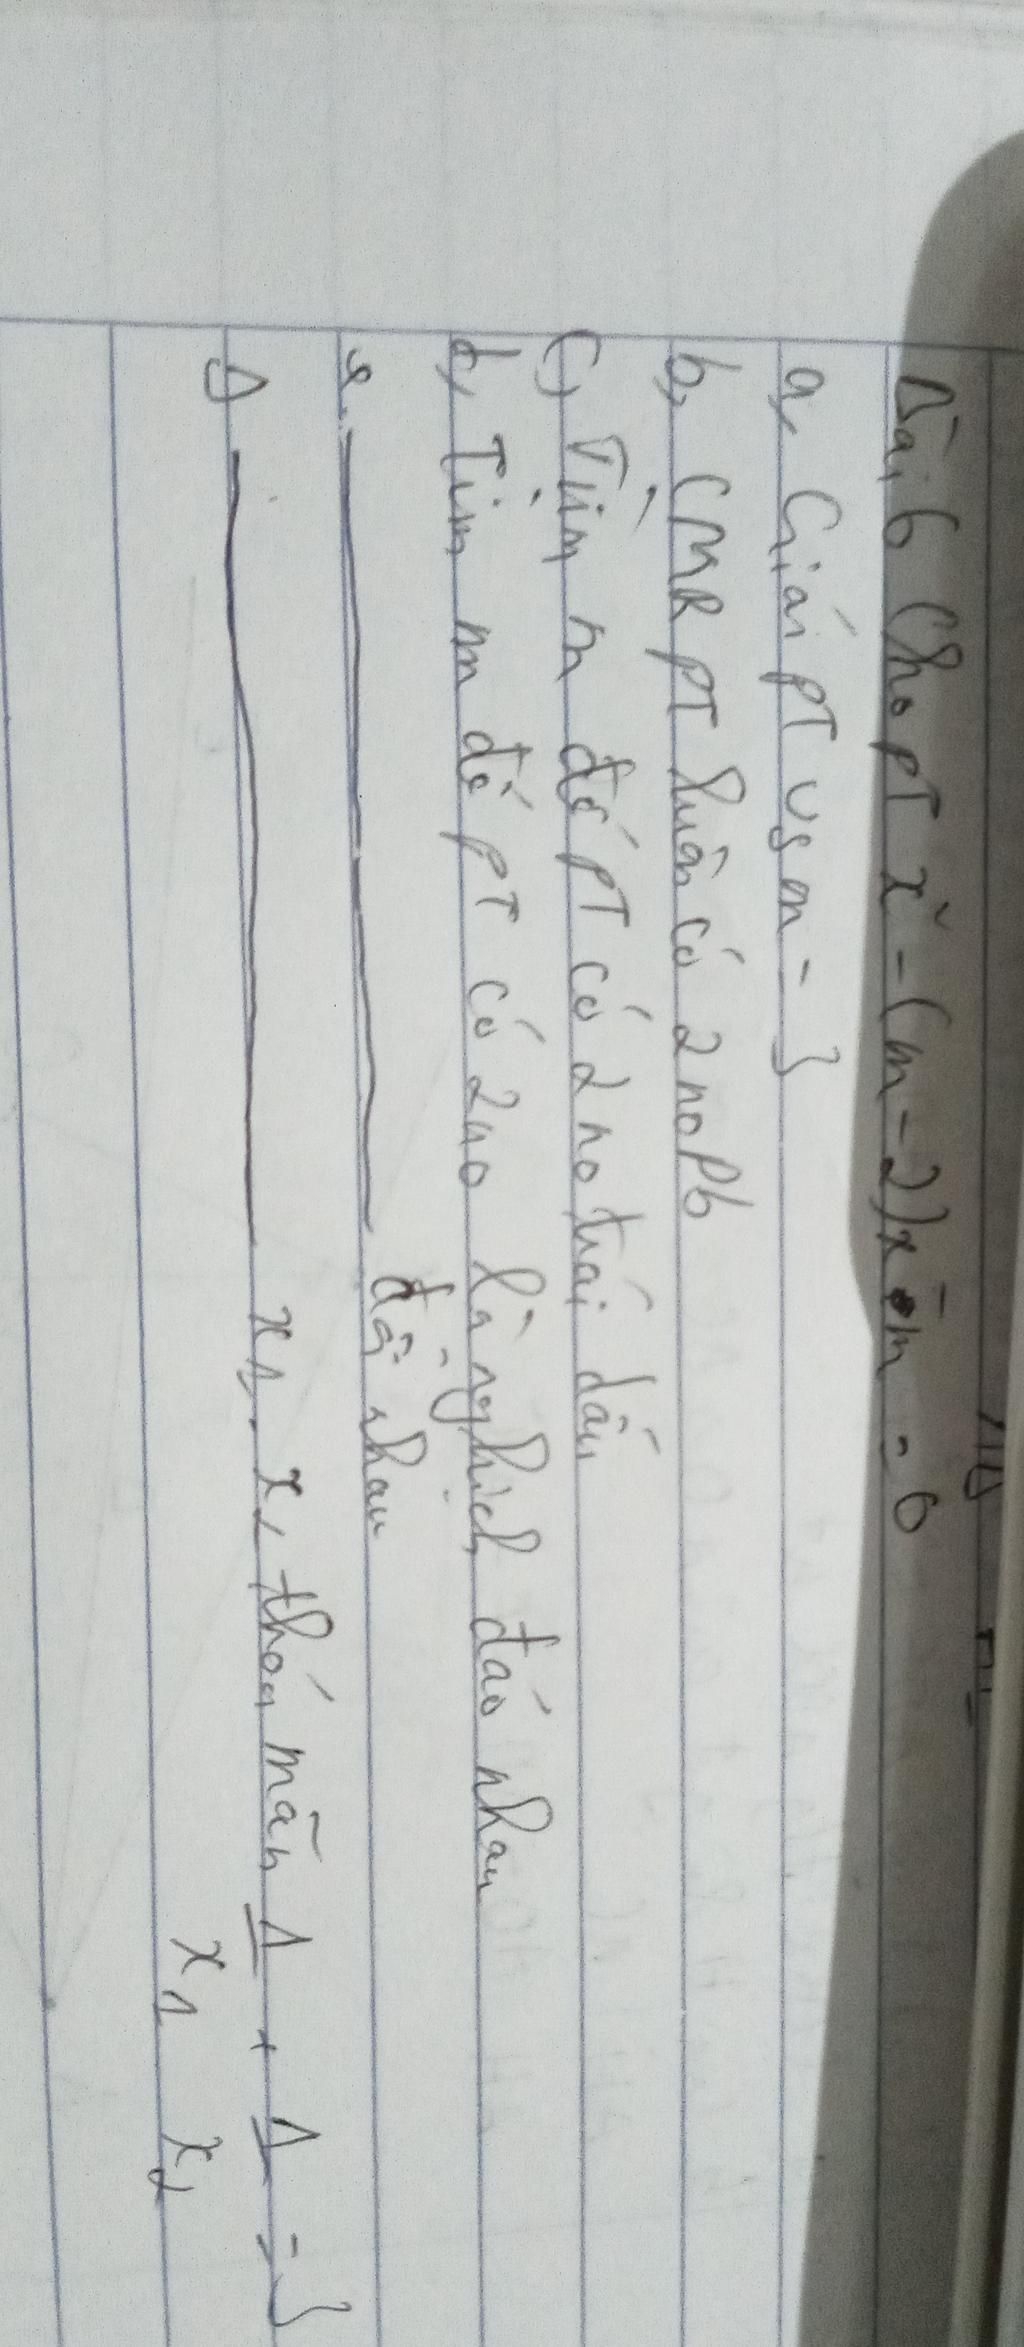 Bài 6 Cho PT x² - (m - 2)x - m = 0
a, Giải PT vs m = 3
b, CMR PT luôn có 2 no Pb
c, Tìm m để PT có 2 no trái dấu
d, Tìm m để PT có 2 no là nghịch đảo nhau
e, đối nhau
x1, x2 thoả mãn 1/x1 + 1/x2 = 3